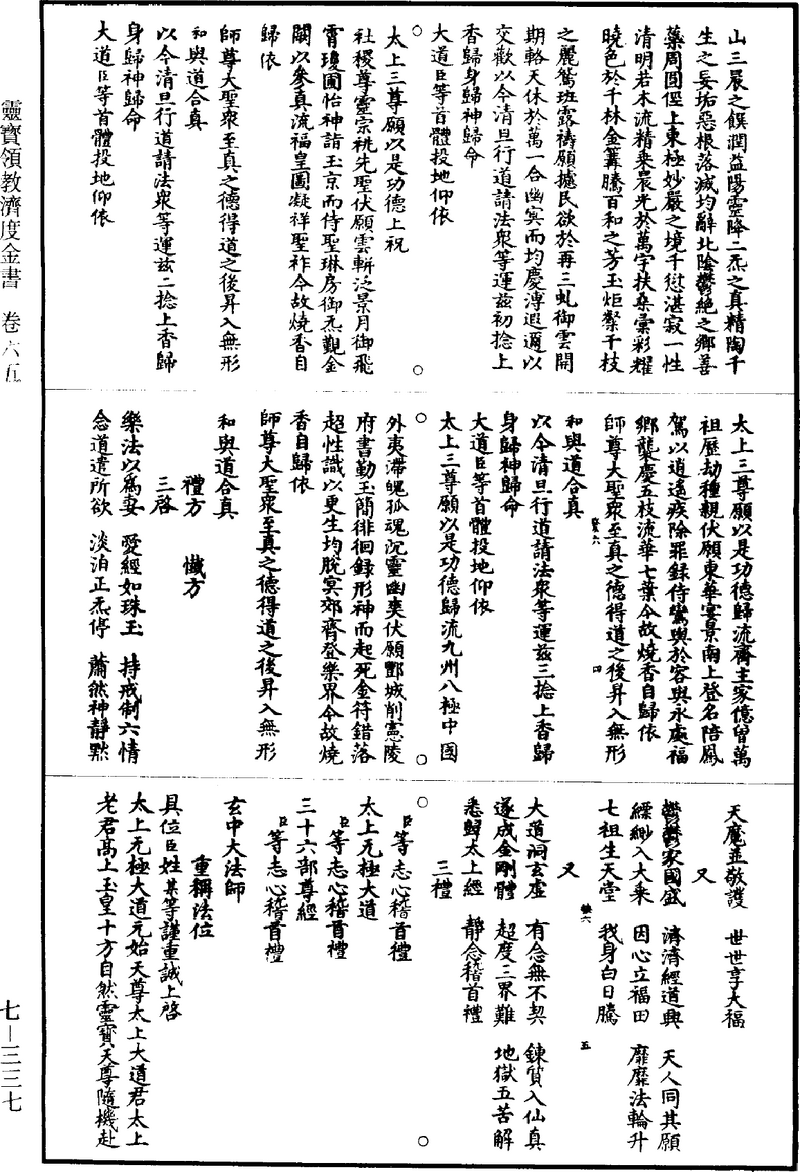 山三晨之饌潤益陽靈降二炁之真精陶千
生之妄垢惡根落滅均辭北陰鬱絶之鄉善
藥周圓徑上東極妙嚴之境千愆湛寂一性
清明若木流精乘晨光於萬宇扶桑彙彩耀
曉色於千林金篝騰百和之芳玉炬粲千枝
之麗鴛班露禱願攄民欲於再三虬御雲開
期輅天休於萬一合幽冥而均慶溥遐邇以
交歡以今清旦行道請法衆等運兹初捻上
香歸身歸神歸命
大道臣等首體投地仰依
太上三尊願以是功德上祝
社稷尊靈宗祧先聖伏願雲軿泛景月御飛
霄瓊圃怡神詣玉京而侍聖琳房御炁覲金
闕以參真流福皇圖凝祥聖祚今故燒香自
歸依
師尊大聖衆至真之德得道之後昇入無形
和與道合真
以今清旦行道請法衆等運兹二捻上香歸
身歸神歸命
大道臣等首體投地仰依
太上三尊願以是功德歸流齋主家億曾萬
祖歷劫種親伏願東華宴景南上登名陪鳳
駕以逍遙疾除罪録侍鸞輿於容與永處福
鄉襲慶五枝流華七葉今故燒香自歸依
師尊大聖衆至真之德得道之後昇入無形
和與道合真
以今清旦行道請法衆等運兹三捻上香歸
身歸神歸命
大道臣等首體投地仰依
太上三尊願以是功德歸流九州八極中國
外夷滯魄孤魂沉靈幽爽伏願酆城削憲陵
府書勤玉簡徘徊録形神而起死金符錯落
超性識以更生均脫冥郊齊登樂界今故燒
香自歸依
師尊大聖衆至真之德得道之後昇入無形
和與道合真
禮方 懺方
三啓
樂法以爲妻 愛經如珠玉 持戒制六情
念道遣所欲 淡泊正炁停 蕭然神靜默
天魔並敬護 世世享大福
又
鬱鬱家國盛 濟濟經道興 天人同其願
縹緲入大乘 因心立福田 靡靡法輪升
七祖生天堂 我身白日騰
又
大道洞玄虛 有念無不契 鍊質入仙真
遂成金剛體 超度三界難 地獄五苦解
悉歸太上經 靜念稽首禮
三禮
臣等志心稽首禮
太上无極大道
臣等志心稽首禮
三十六部尊經
臣等志心稽首禮
玄中大法師
重稱法位
具位臣姓某等謹重誠上啓
太上无極大道元始天尊太上大道君太上
老君高上玉皇十方自然靈寶天尊隨機赴
靈寶領教濟度金書 卷六五
七—三三七